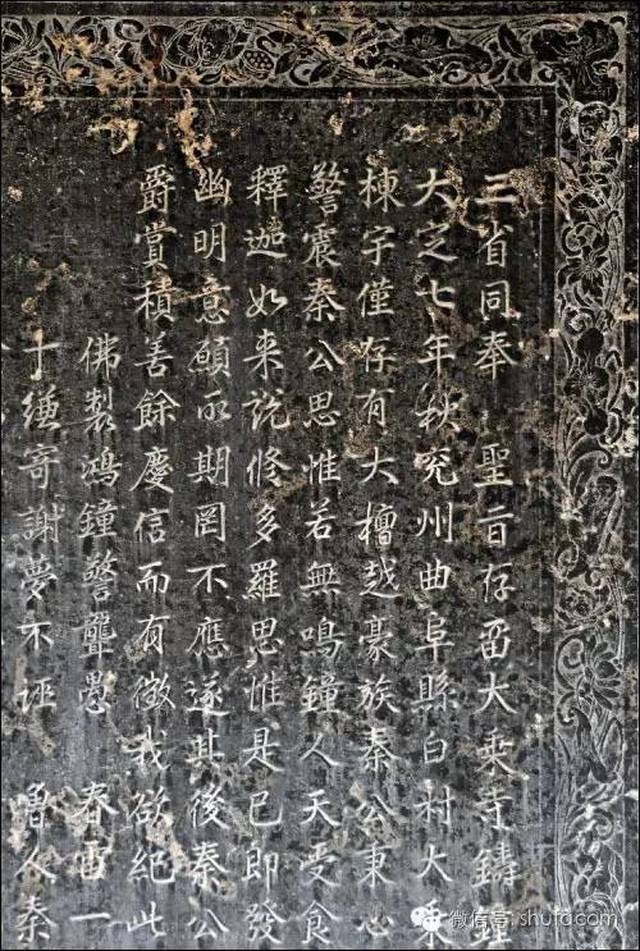 三省同奉　聖旨存留大乘寺鑄鍾
大定七年秋兖州曲阜縣白村大乘
棟宇僅存有大檀越豪族秦公東心
警震秦公思惟若無鳴鐘人天受食
釋迦如来說修多羅思惟是已即發
幽明意願所期罔不應遂其後秦公
爵賞積善餘慶信而有徵我欲紀此
佛製鴻鐘警聾愚　春雷一
寄謝夢不誣　魯人秦
微信号: shufa.com